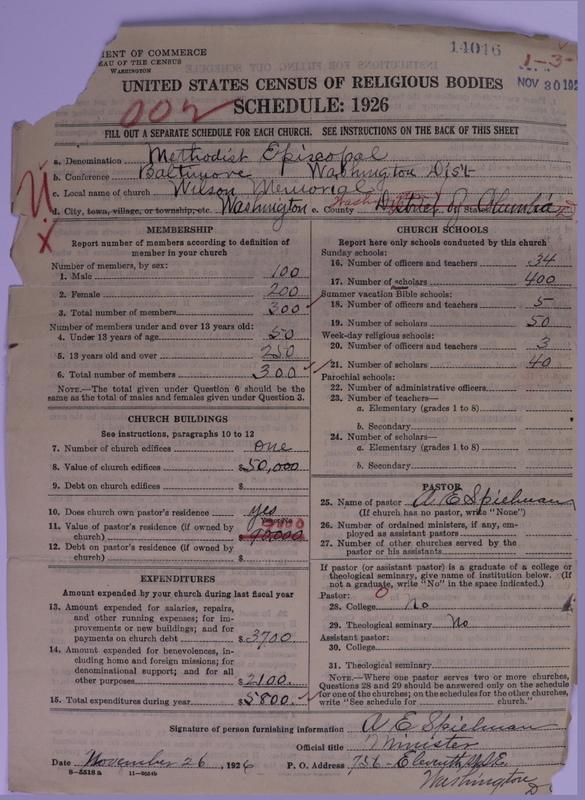 MENT OF COMMERCE
EAU OF THE CENSUS
WASHINGTON
14016
1-3-
NOV 30 192
UNITED STATES CENSUS OF RELIGIOUS BODIES
002
SCHEDULE: 1926
FILL OUT A SEPARATE SCHEDULE FOR EACH CHURCH. SEE INSTRUCTIONS ON THE BACK OF THIS SHEET
a. Denomination Methodist Episcopal
b. Conference Baltimore Washington Dist
c. Local name of church Wilson Memorial
d. City, town, village, or township, etc. Washington e. County District of Columbia State
MEMBERSHIP
Report number of members according to definition of member in your church
Number of members, by sex:
1. Male 100
2. Female 200
3. Total number of members 300
Number of members under and over 13 years old:
4. Under 13 years of age 50
5. 13 years old and over 250
6. Total number of members 300
NOTE.—The total given under Question 6 should be the
same as the total of males and females given under Question 3.
CHURCH BUILDINGS
See instructions, paragraphs 10 to 12
7. Number of church edifices one
8. Value of church edifices $50,000
9. Debt on church edifices $
10. Does church own pastor's residence yes
Yes or No
11. Value of pastor's residence (if owned by
church) $
12. Debt on pastor's residence (if owned by
church) $
EXPENDITURES
Amount expended by your church during last fiscal year
13. Amount expended for salaries, repairs,
and other running expenses; for im-
provements or new buildings; and for
payments on church debt $3700.
14. Amount expended for benevolences, in-
cluding home and foreign missions; for
denominational support; and for all
other purposes $2100.
15. Total expenditures during year $5800.
CHURCH SCHOOLS
Report here only schools conducted by this church
Sunday schools:
16. Number of officers and teachers 34
17. Number of scholars 400
Summer vacation Bible schools:
18. Number of officers and teachers 5
19. Number of scholars 50
Week-day religious schools:
20. Number of officers and teachers 3
21. Number of scholars 40
Parochial schools:
22. Number of administrative officers
23. Number of teachers—
a. Elementary (grades 1 to 8)
b. Secondary
24. Number of scholars—
a. Elementary (grades 1 to 8)
b. Secondary
PASTOR
25. Name of pastor A. E. Spielman
(If church has no pastor, write "None")
26. Number of ordained ministers, if any, em-
ployed as assistant pastors
27. Number of other churches served by the
pastor or his assistants
If pastor (or assistant pastor) is a graduate of a college or
theological seminary, give name of institution below. (If
not a graduate, write "No" in the space indicated.)
Pastor: 0
28. College No
29. Theological seminary No
Assistant pastor:
30. College
31. Theological seminary
NOTE.—Where one pastor serves two or more churches,
Questions 28 and 29 should be answered only on the schedule
for one of the churches; on the schedules for the other churches,
write "See schedule for church."
Signature of person furnishing information A E Spielman
Official title Minister
Date November 26, 1926 P. O. Address 756 - Eleventh St S.E.
8—5518 a
Washington D